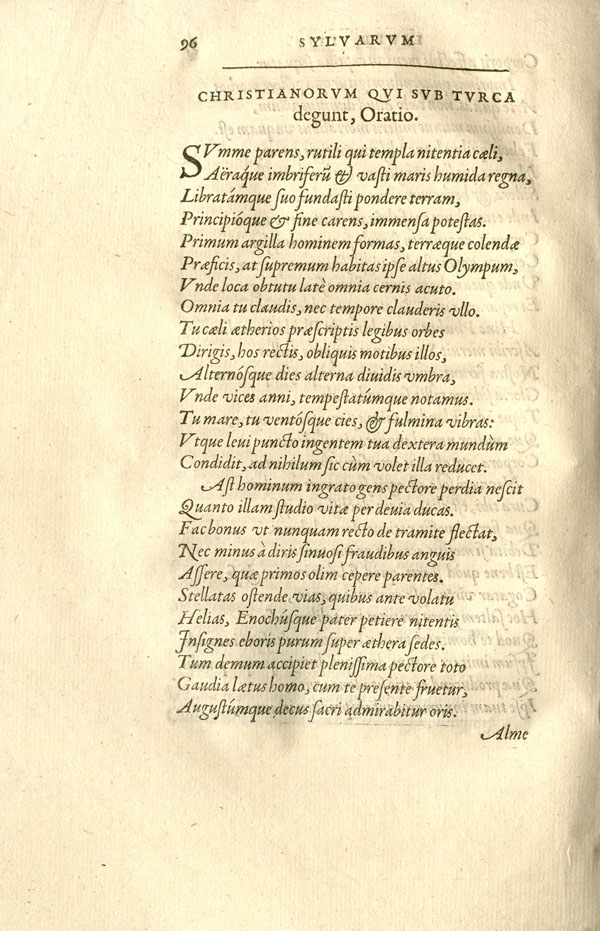 96 SYLVARVM
CHRISTIANORVM QVI SVB TVRCA
degunt, Oratio.
SVmme parens, rutili qui templa nitentia cæli,
Aëráque imbriferũ & vasti maris humida regna,
Libratámque suo fundasti pondere terram,
Principióque & fine carens, immensa potestas.
Primum argilla hominem formas, terræque colendæ
Præficis, at supremum habitas ipse altus Olympum,
Vnde loca obtutu latè omnia cernis acuto.
Omnia tu claudis, nec tempore clauderis vllo.
Tu cæli ætherios præscriptis legibus orbes
Dirigis, hos rectis, obliquis motibus illos,
Alternósque dies alterna diuidis vmbra,
Vnde vices anni, tempestatúmque notamus.
Tu mare, tu ventósque cies, & fulmina vibras:
Vtque leui puncto ingentem tua dextera mundùm
Condidit, ad nihilum sic cùm volet illa reducet.
Ast hominum ingrato gens pectore perdia nescit
Quanto illam studio vitæ per deuia ducas.
Fac bonus vt nunquam recto de tramite flectat,
Nec minus à diris sinuosi fraudibus anguis
Assere, quæ primos olim cepere parentes.
Stellatas ostende vias, quibus ante volatu
Helias, Enochúsque pater petiere nitentis
Insignes eboris purum super æthera sedes.
Tum demum accipiet plenissima pectore toto
Gaudia lætus homo, cum te presente fruetur,
Augustúmque decus sacri admirabitur oris.
Alme